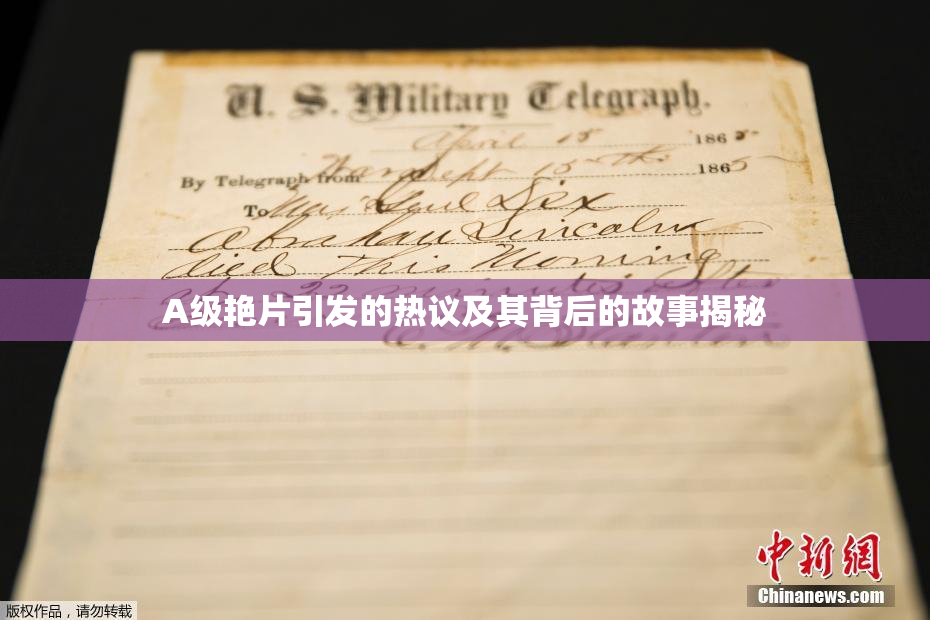 U. S. Military Telegraph.
April 15 1865
By Telegraph from War Dept 15th 1865
To Maj Genl Dix
Abraham Lincoln
died This Morning
at 22 minutes after
A级艳片引发的热议及其背后的故事揭秘
E. M. Stanton
中新网
Chinanews.com
版权作品，请勿转载